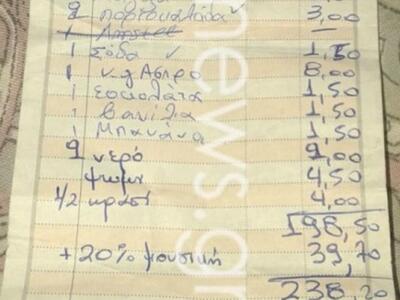 2 πορτοκαλάδα ✓ 3,00
1 Amstel —
1 Σόδα ✓ 1,50
1 ν.g Ασπρο 8,00
1 σοκολάτα 1,50
1 Βανίλια 1,50
1 Μπανάνα 1,50
9 νερό 9,00
ψωμι 4,50
1/2 κρασί 4,00
198,50
+20% μουσική 39,70
238,20
news.gr